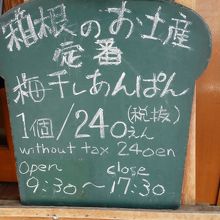 箱根のお土産
定番
梅干しあんぱん
1個/240えん(税抜)
without tax 240en
Open close
9:30～17:30